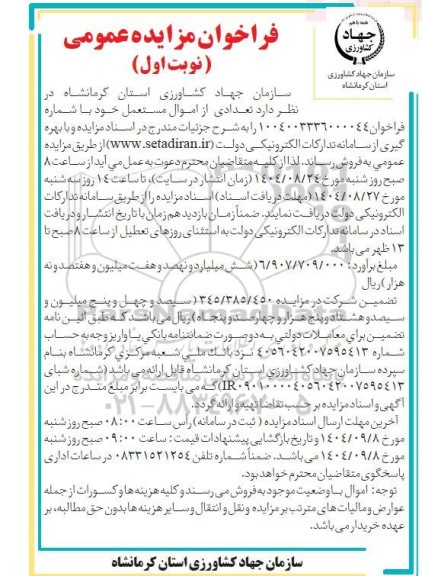 همه با هم
جهاد
کشاورزی
سازمان جهاد کشاورزی
استان کرمانشاه
فراخوان مزایده عمومی
(نوبت اول)
سازمان جهاد کشاورزی استان کرمانشاه در
نظر دارد تعدادی از اموال مستعمل خود با شماره
فراخوان ۱۰۰۴۰۰۳۳۳۶۰۰۰۰۴۴ را به شرح جزئیات مندرج در اسناد مزایده و با بهره
گیری از سامانه تدارکات الکترونیکی دولت (www.setadiran.ir) از طریق مزایده
عمومی به فروش رساند. لذا از کلیه متقاضیان محترم دعوت به عمل می آید از ساعت ۸
صبح روز شنبه مورخ ۱۴۰۴/۰۸/۲۴ (زمان انتشار در سایت)، تا ساعت ۱۴ روز سه شنبه
مورخ ۱۴۰۴/۰۸/۲۷ (مهلت دریافت اسناد) اسناد مزایده را از طریق سامانه تدارکات
الکترونیکی دولت دریافت نمایند. ضمناً زمان بازدید هم زمان با تاریخ انتشار و دریافت
اسناد در سامانه تدارکات الکترونیکی دولت به استثنای روزهای تعطیل از ساعت ۸ صبح تا
۱۳ ظهر می باشد.
مبلغ برآورد: ۶/۹۰۷/۷۰۹/۰۰۰ (شش میلیارد و نهصد و هفت میلیون و هفتصد و نه
هزار) ریال
تضمین شرکت در مزایده ۳۴۵/۳۸۵/۴۵۰ (سیصد و چهل و پنج میلیون و
سیصد و هشتاد و پنج هزار و چهارصد و پنجاه) ریال می باشد. که طبق آئین نامه
تضمین برای معاملات دولتی به دو صورت ضمانتنامه بانکی یا واریز وجه به حساب
شماره ۴۰۵۶۰۴۲۰۰۷۵۹۵۴۱۳ نزد بانک ملی شعبه مرکزی کرمانشاه بنام
سپرده سازمان جهاد کشاورزی استان کرمانشاه قابل ارائه می باشد (شماره شبای
IR۰۹۰۱۰۰۰۰۴۰۵۶۰۴۲۰۰۷۵۹۵۴۱۳) که می بایست برابر مبلغ مندرج در این
آگهی و اسناد مزایده بر حسب تقاضا تهیه و ارائه گردد.
آخرین مهلت ارسال اسناد مزایده (ثبت در سامانه) رأس ساعت ۰۸:۰۰ صبح روز شنبه
مورخ ۱۴۰۴/۰۹/۸ و تاریخ بازگشایی پیشنهادات قیمت: ساعت ۰۹:۰۰ صبح روز شنبه
مورخ ۱۴۰۴/۰۹/۸ می باشد. ضمناً شماره تلفن ۰۸۳۳۱۵۲۱۲۵۴ در ساعات اداری
پاسخگوی متقاضیان محترم خواهد بود.
توجه: اموال با وضعیت موجود به فروش می رسند و کلیه هزینه ها و کسورات از جمله
عوارض و مالیات های مترتب بر مزایده و نقل و انتقال و سایر هزینه ها بدون حق مطالبه، بر
عهده خریدار می باشد.
سازمان جهاد کشاورزی استان کرمانشاه